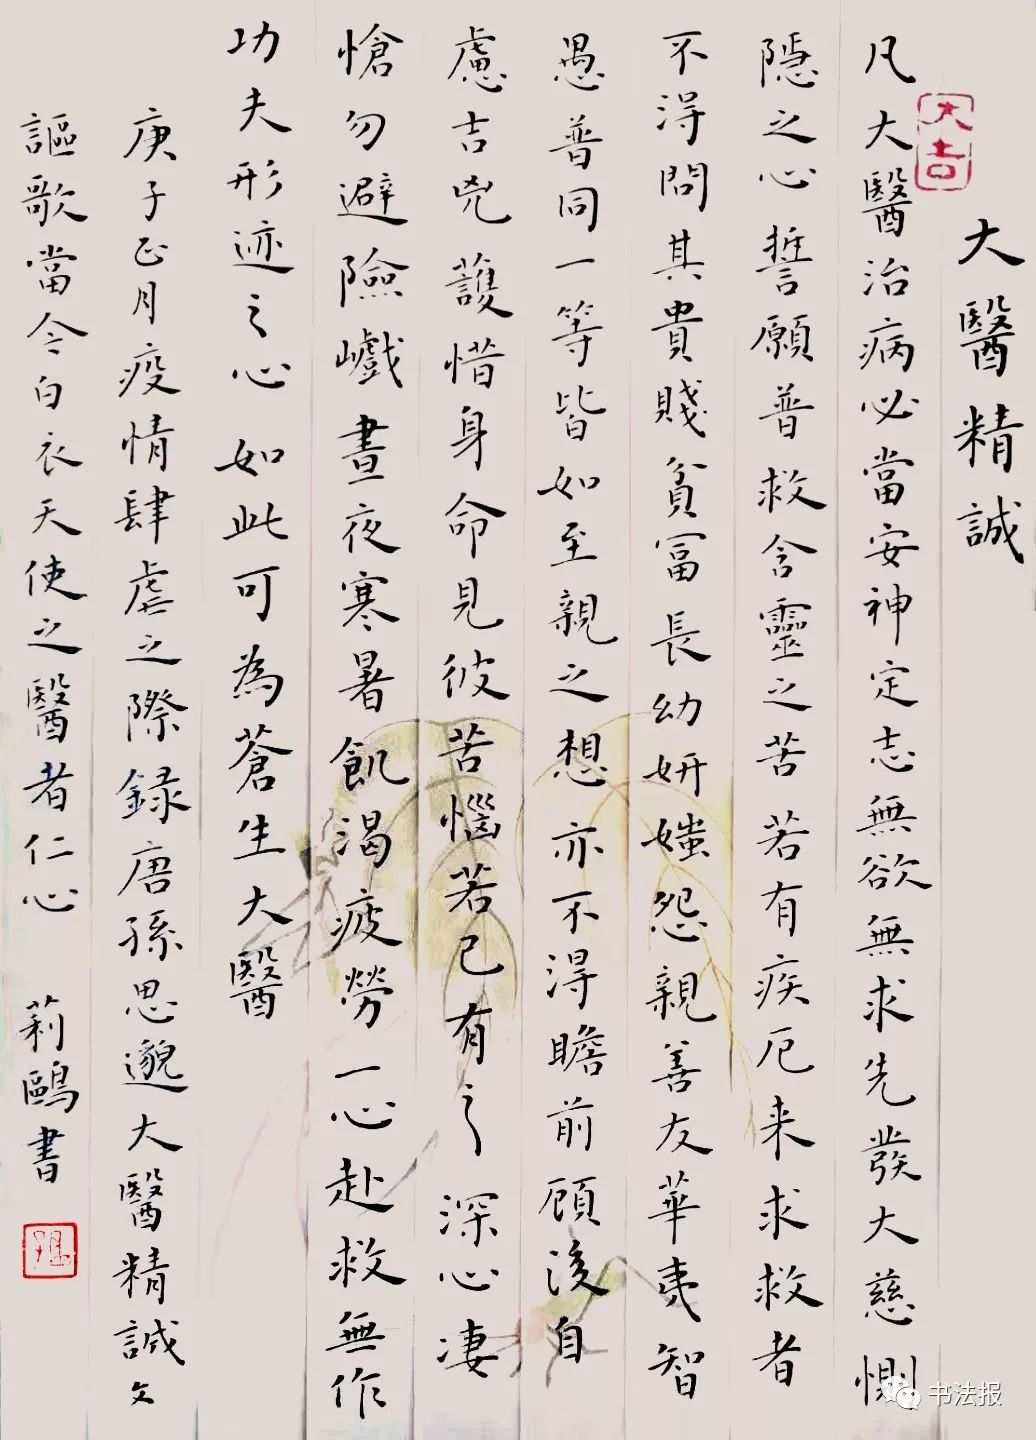 大吉
大醫精誠
凡大醫治病必當安神定志無欲無求先發大慈惻
隱之心誓願普救含靈之苦若有疾厄来求救者
不得問其貴賤貧冨長幼妍媸怨親善友華夷智
愚普同一等皆如至親之想亦不得瞻前顧後自
慮吉兇護惜身命見彼苦惱若己有之深心凄
愴勿避險巇晝夜寒暑飢渴疲勞一心赴救無作
功夫形迹之心如此可為蒼生大醫
庚子正月疫情肆虐之際録唐孫思邈大醫精誠文
謳歌當今白衣天使之醫者仁心 莉鷗書
书法报